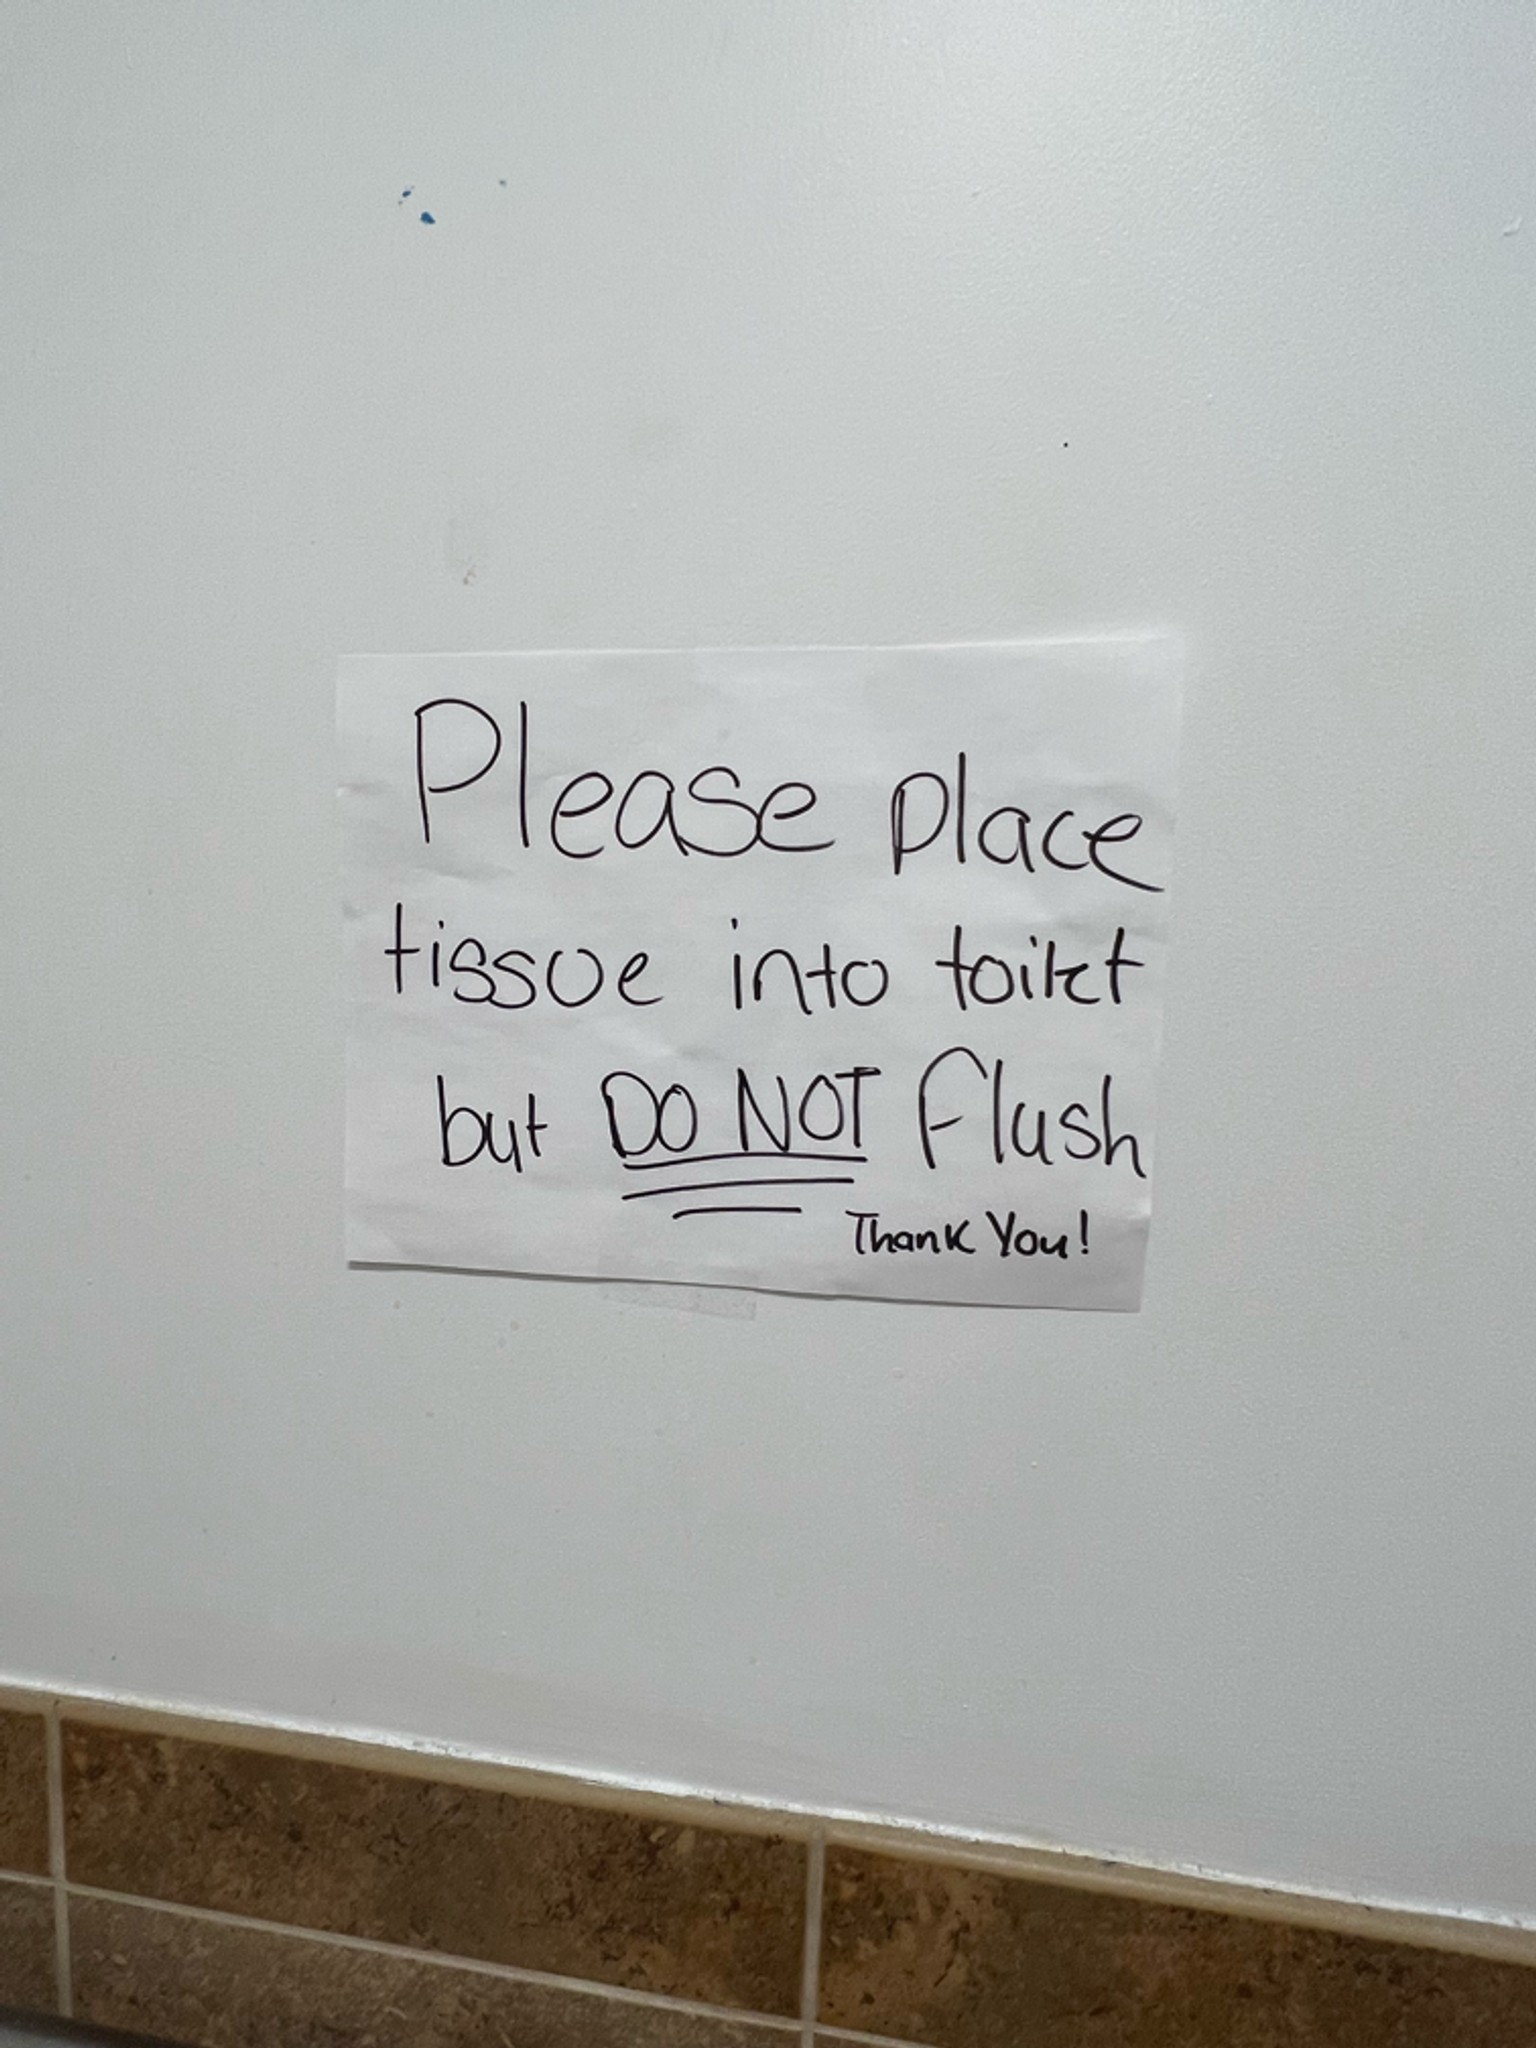 Please place
tissue into toilet
but DO NOT flush
Thank You!